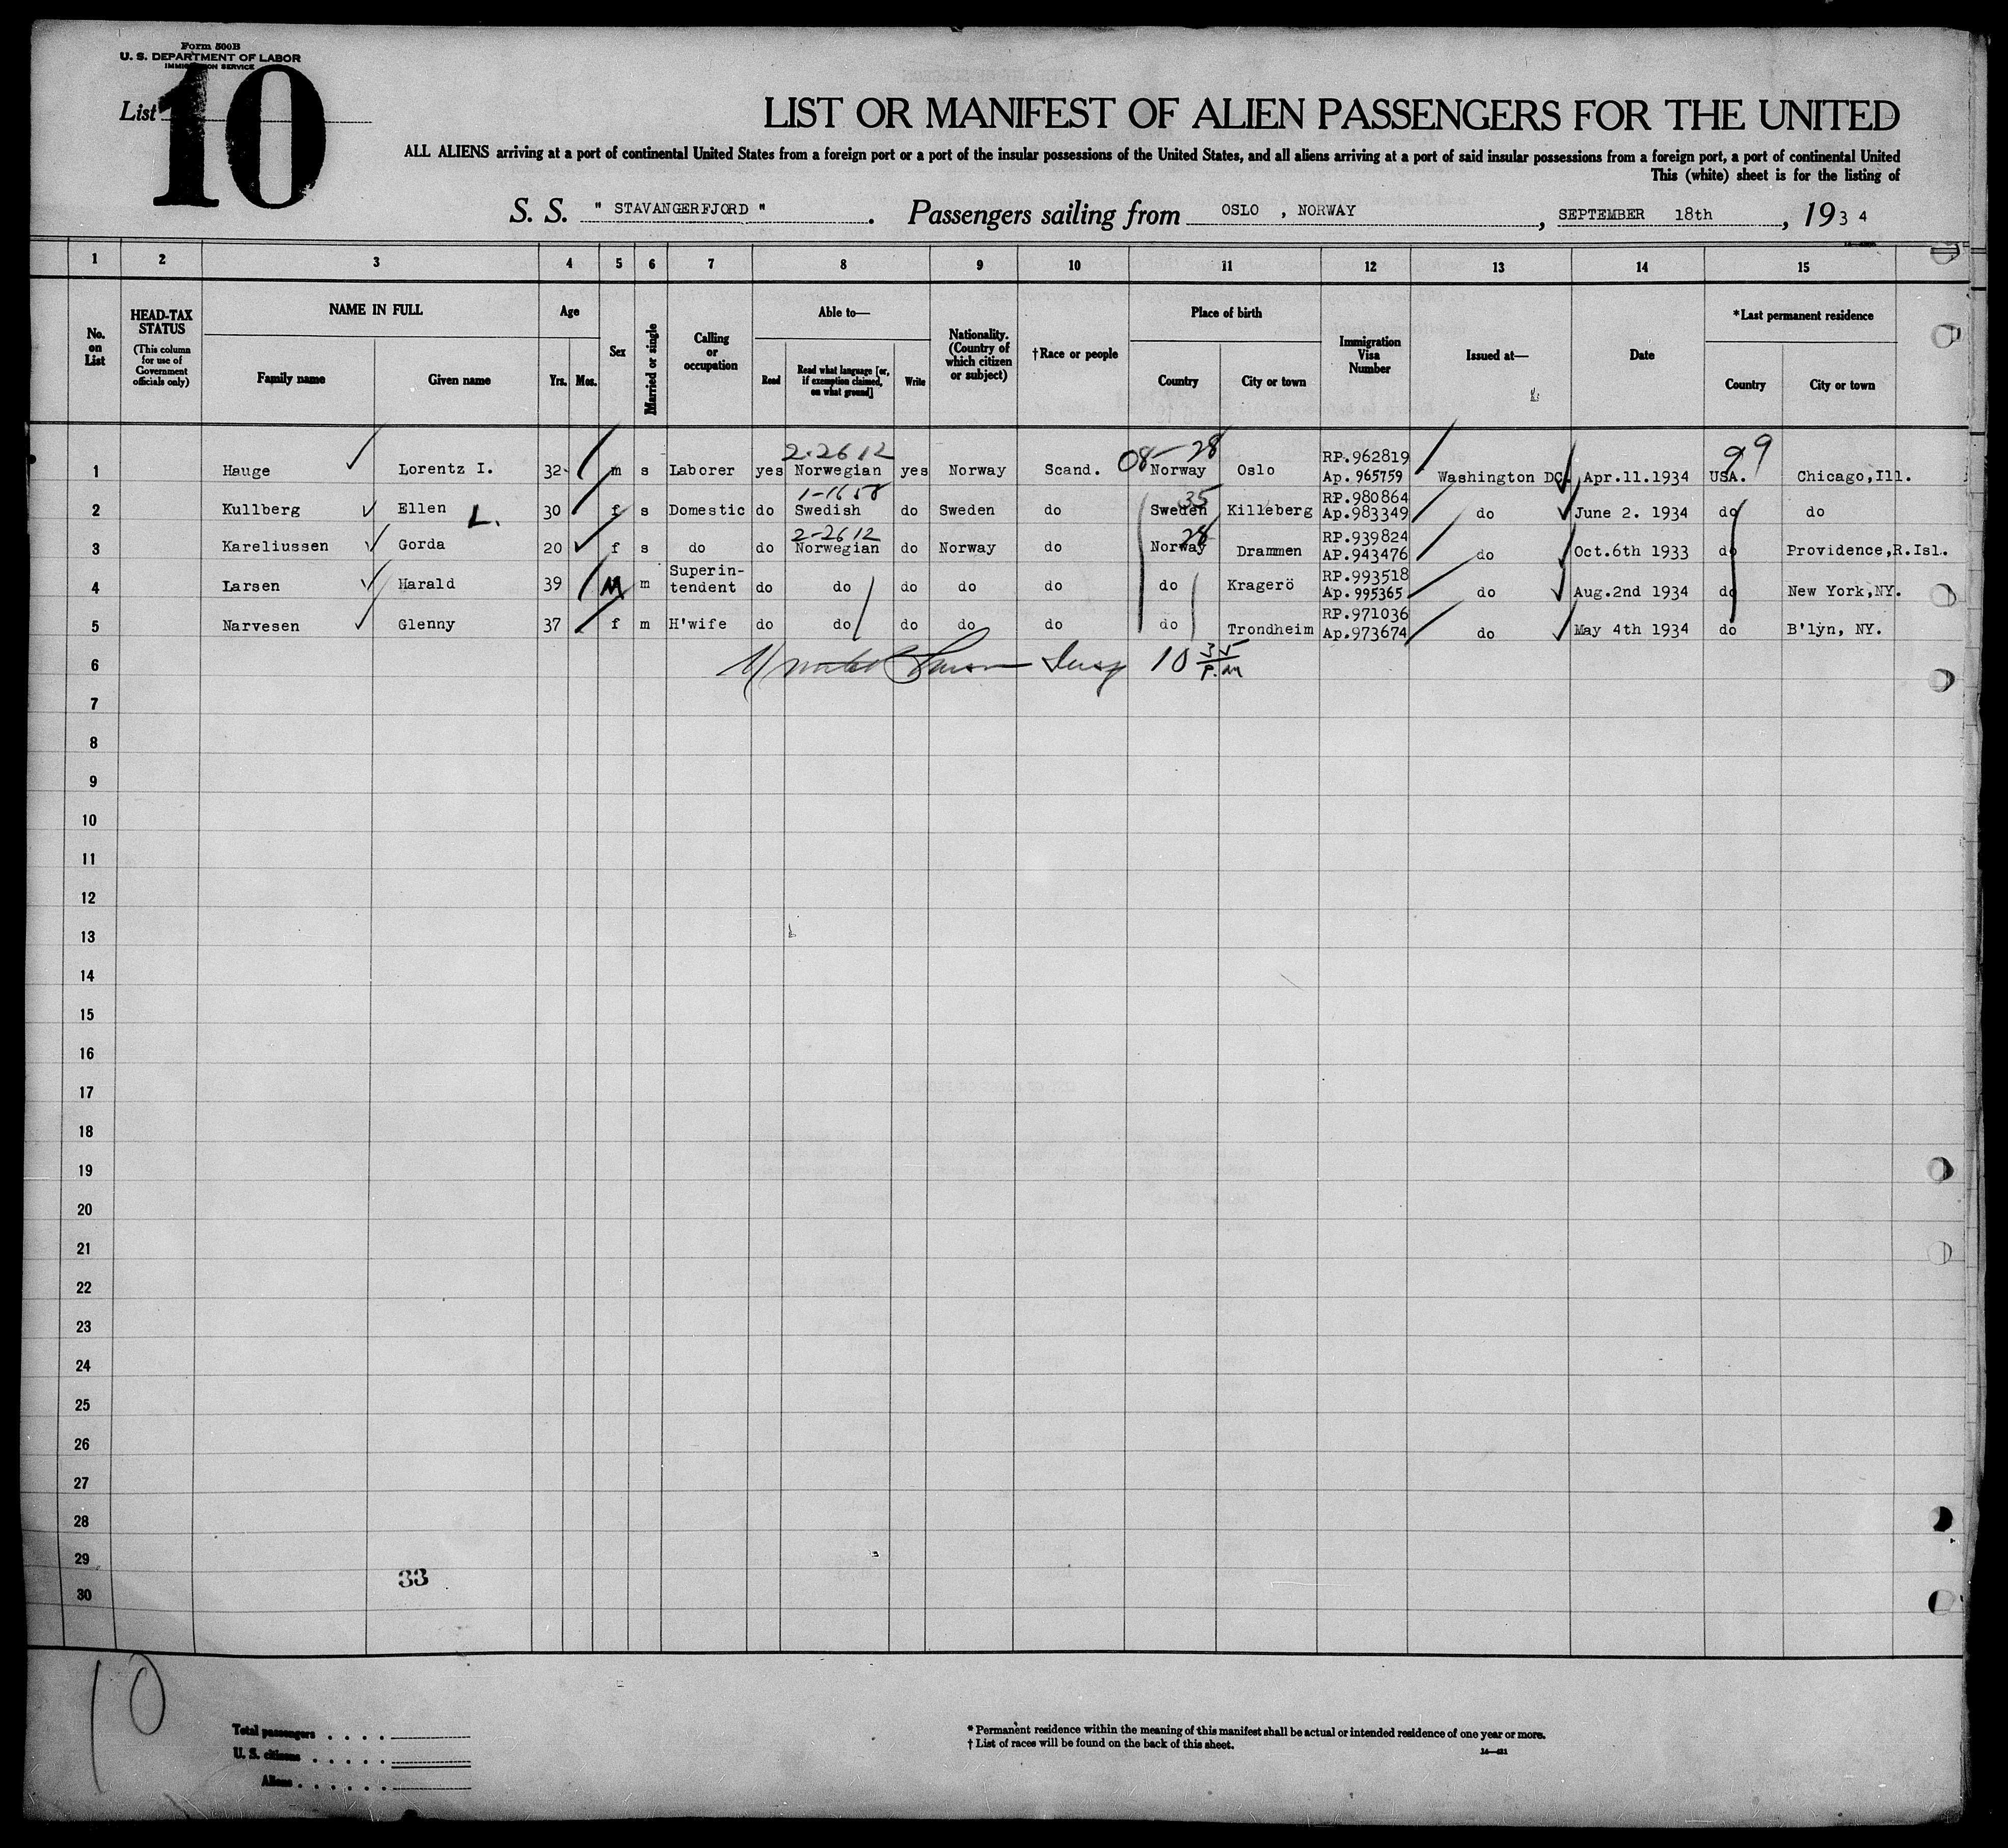 Form 500B
U. S. DEPARTMENT OF LABOR
IMMIGRATION SERVICE
List 10
LIST OR MANIFEST OF ALIEN PASSENGERS FOR THE UNITED
ALL ALIENS arriving at a port of continental United States from a foreign port or a port of the insular possessions of the United States, and all aliens arriving at a port of said insular possessions from a foreign port, a port of continental United
This (white) sheet is for the listing of
S. S. " STAVANGERFJORD " . Passengers sailing from OSLO , NORWAY , SEPTEMBER 18th , 193 4
1 2 3 4 5 6 7 8 9 10 11 12 13 14 15
No. on List
HEAD-TAX STATUS (This column for use of Government officials only)
NAME IN FULL
Family name
Given name
Age
Yrs. Mos.
Sex
Married or single
Calling or occupation
Able to—
Read
Read what language [or, if exemption claimed, on what ground]
Write
Nationality. (Country of which citizen or subject)
†Race or people
Place of birth
Country
City or town
Immigration Visa Number
Issued at—
Date
*Last permanent residence
Country
City or town
2-26 12 08-28 99
1 Hauge Lorentz I. 32 m s Laborer yes Norwegian yes Norway Scand. Norway Oslo RP.962819 Ap.965759 Washington DC. Apr.11.1934 USA. Chicago,Ill.
1-1658 35
2 Kullberg Ellen L. 30 f s Domestic do Swedish do Sweden do Sweden Killeberg RP.980864 Ap.983349 do June 2. 1934 do do
2-26 12 28
3 Kareliussen Gorda 20 f s do do Norwegian do Norway do Norway Drammen RP.939824 AP.943476 do Oct.6th 1933 do Providence,R.Isl.
4 Larsen Harald 39 M m Superin-tendent do do do do do do Kragerö RP.993518 Ap.995365 do Aug.2nd 1934 do New York,NY.
5 Narvesen Glenny 37 f m H'wife do do do do do do Trondheim RP.971036 Ap.973674 do May 4th 1934 do B'lyn, NY.
6 Insp 10 35 P.M
7
8
9
10
11
12
13
14
15
16
17
18
19
20
21
22
23
24
25
26
27
28
29
33
30
10
Total passengers . . . .
U. S. citizens . . . . .
Aliens . . . . . .
* Permanent residence within the meaning of this manifest shall be actual or intended residence of one year or more.
† List of races will be found on the back of this sheet.